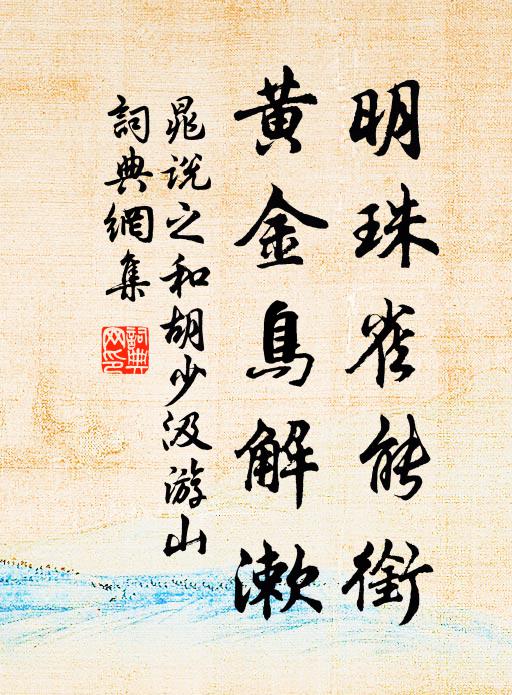 明珠雀能銜
黃金鳥解漱
晁說之和胡少汲游山
詞典網集
詞典網印